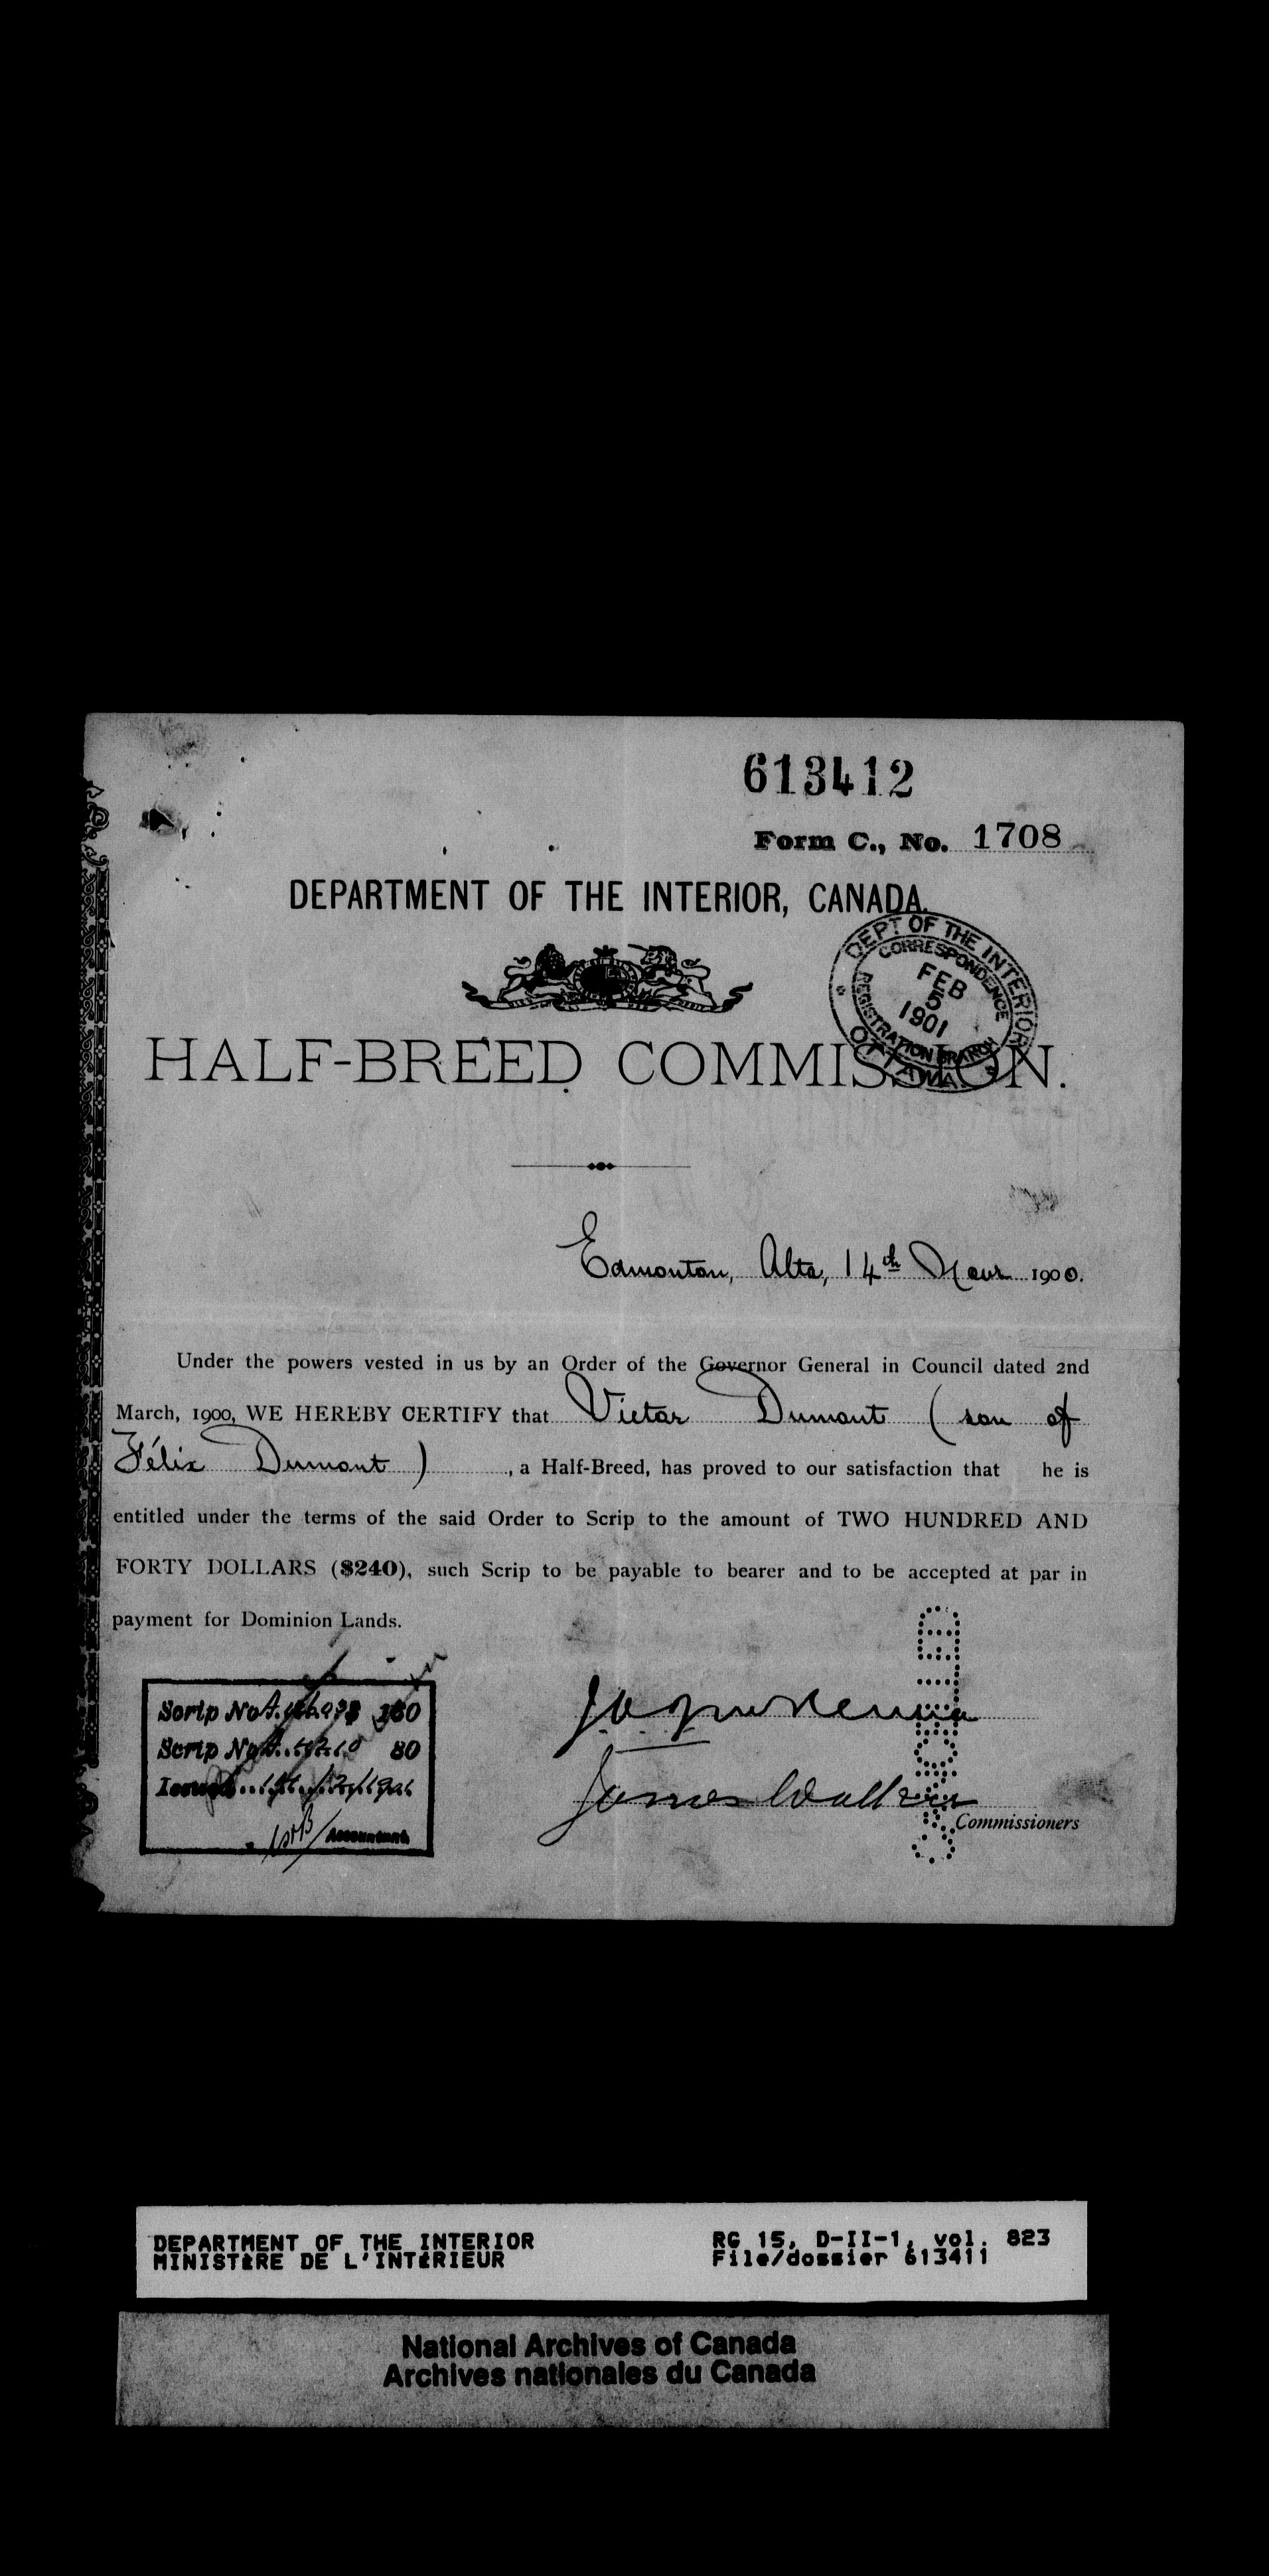 613412
Form C., No. 1708
DEPARTMENT OF THE INTERIOR, CANADA.
DEPT OF THE INTERIOR
CORRESPONDENCE
FEB
5
1901
REGISTRATION BRANCH
OTTAWA
HALF-BREED COMMISSION.
Edmonton, Alta, 14th Novr 1900.
Under the powers vested in us by an Order of the Governor General in Council dated 2nd
March, 1900, WE HEREBY CERTIFY that Victor Dumont ( son of
Félix Dumont ) , a Half-Breed, has proved to our satisfaction that he is
entitled under the terms of the said Order to Scrip to the amount of TWO HUNDRED AND
FORTY DOLLARS ($240), such Scrip to be payable to bearer and to be accepted at par in
payment for Dominion Lands.
Scrip No A. 160
Scrip No A. 80
Issued
Accountant
James Walker
Commissioners
CANCELLED
DEPARTMENT OF THE INTERIOR
MINISTÈRE DE L'INTÉRIEUR
RG 15, D-II-1, vol. 823
File/dossier 613411
National Archives of Canada
Archives nationales du Canada